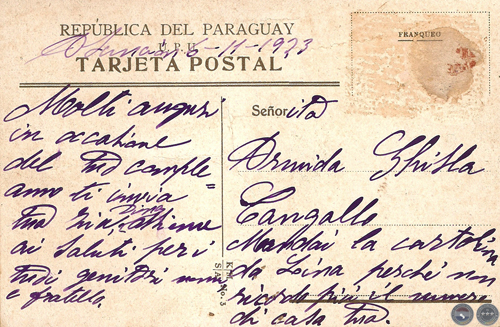 REPÚBLICA DEL PARAGUAY
U.P.U.
6-11-1923
TARJETA POSTAL
FRANQUEO
Molti auguri
in occatione
del tuo comple
anno ti invia
tua zia
ai saluti per i
tuoi genitori
e fratello
Señorita
Armida Ghisla
Cangallo
Mandai la cartolin
da Zoina perché non
ricordo più il numero
di casa tua.